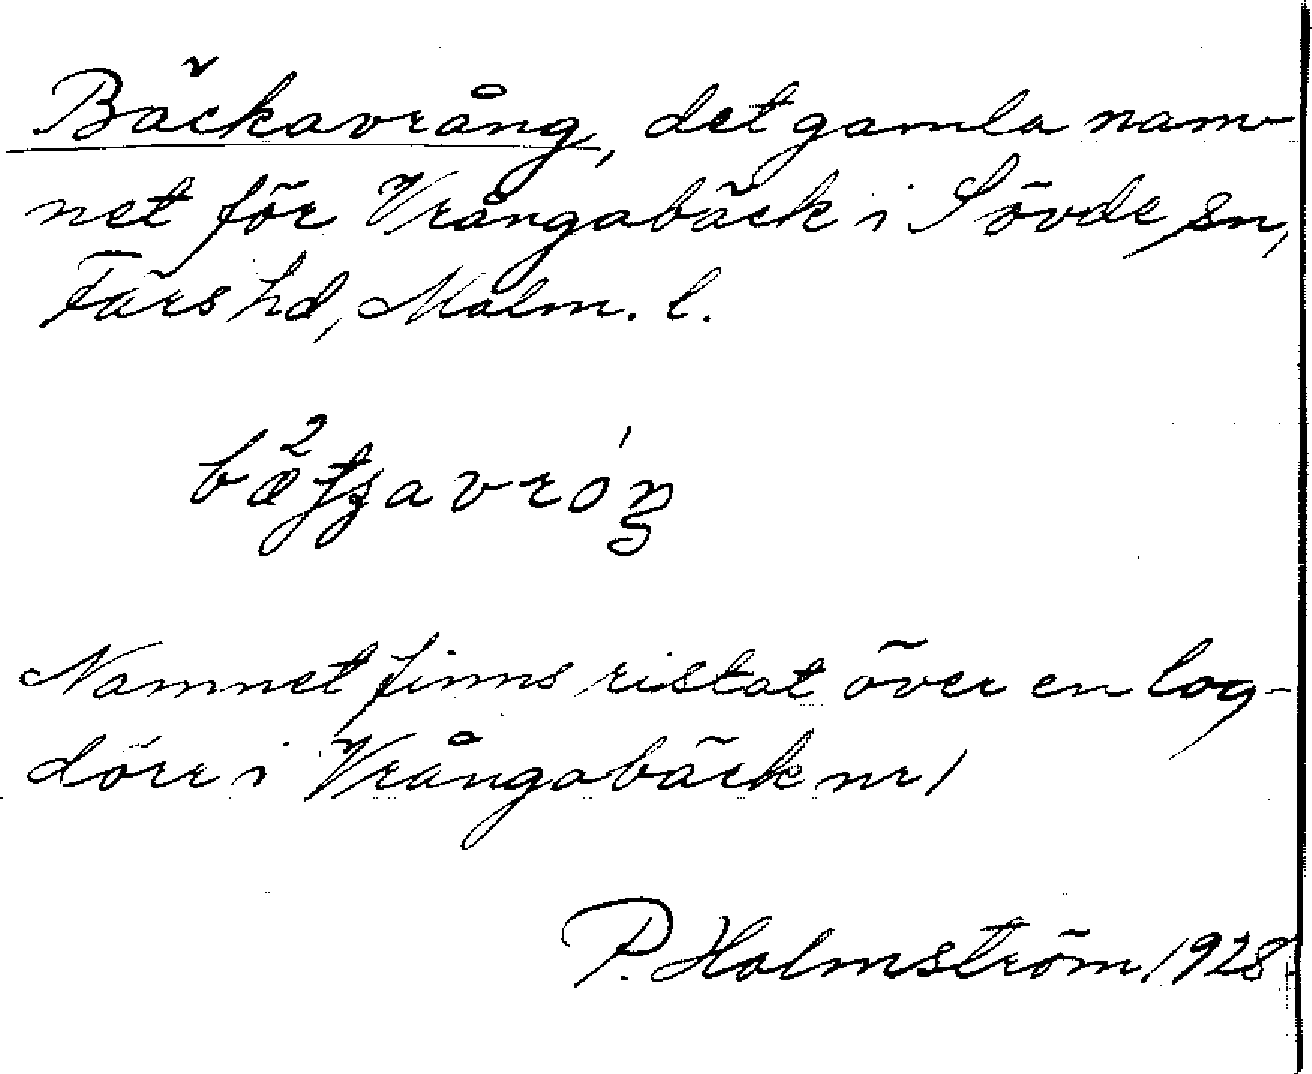 Bäckavrång, det gamla nam-
net för Vrångabäck i Sövde sn,
Färs hd, Malm. l.
Namnet finns ristat över en log-
dörr i Vrångabäck nr 1
P. Holmström, 1928.